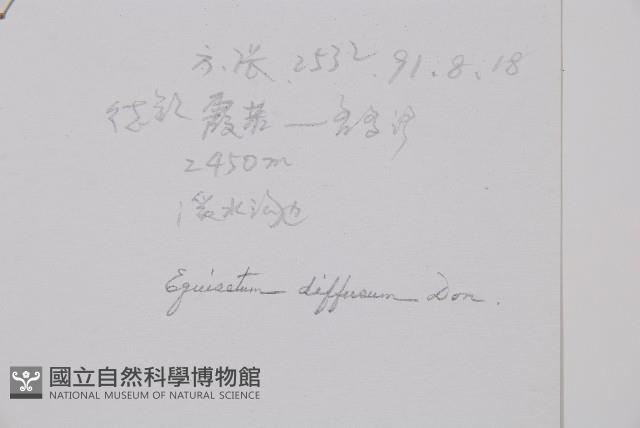 方、张 2532 91.8.18
德钦 霞若—
2450m
水沟边
Equisetum diffusum Don.
國立自然科學博物館
NATIONAL MUSEUM OF NATURAL SCIENCE